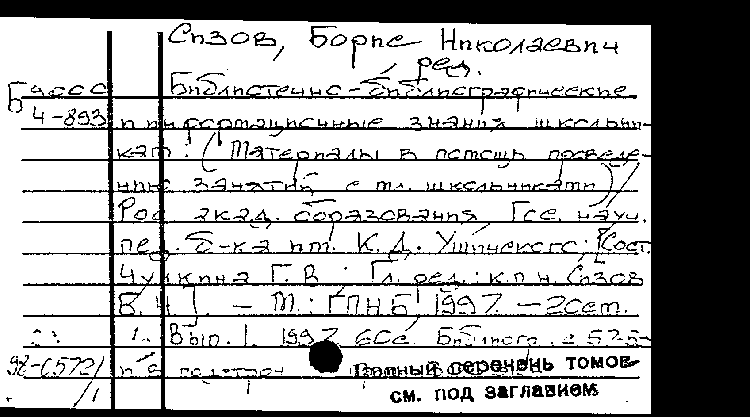 Сизов, Борис Николаевич
ред.
Б9000 Библиотечно-библиографические
4-893 и информационные знания школьни-
кам: (Материалы в помощь проведе-
нию занятий с мл. школьниками) /
Рос. акад. образования, Гос. науч.
пед. б-ка им. К. Д. Ушинского; [Сост.
Чулкина Г. В.; Гл. ред.: к.п.н. Сизов
Б. Н.]. - М.: ГПНБ, 1997. - 20см.
1. Вып. 1. 1997. 60с. Библиогр.: с 52-5
92-(572) и в подстроч.
/1 Полный перечень томов
см. под заглавием